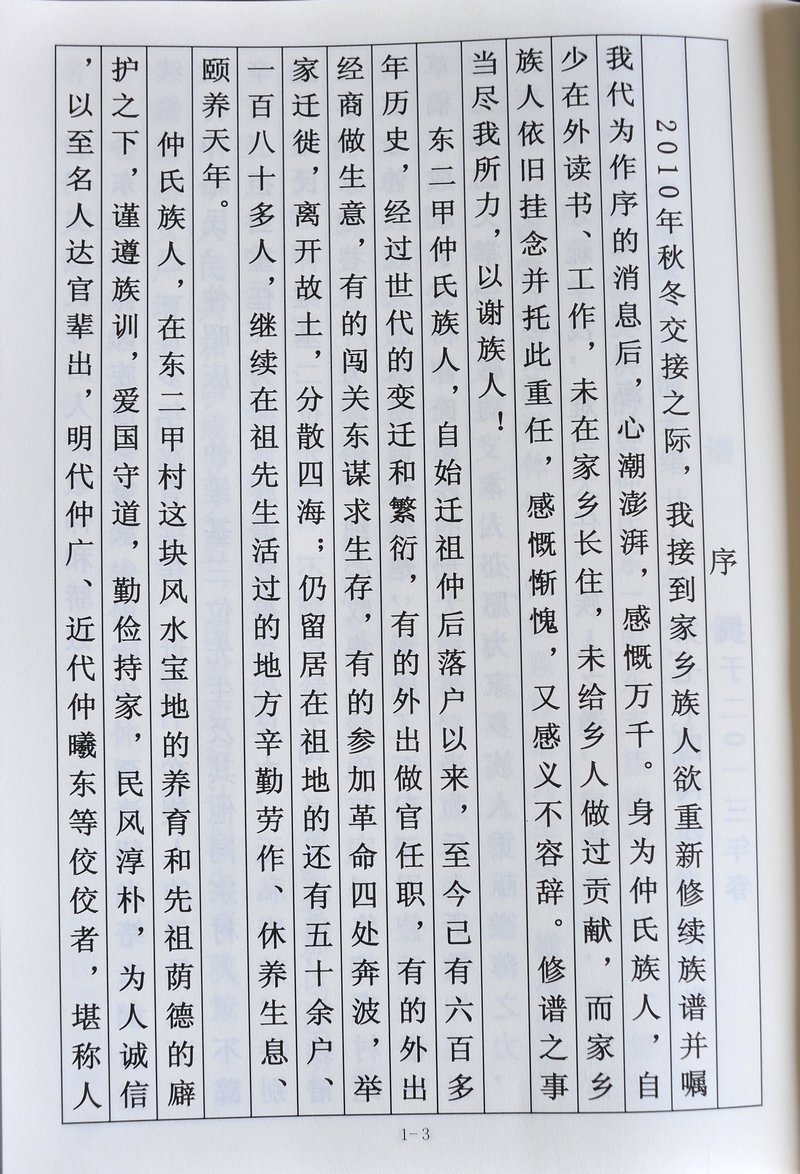 序
2010年秋冬交接之际，我接到家乡族人欲重新修续族谱并嘱
我代为作序的消息后，心潮澎湃，感慨万千。身为仲氏族人，自
少在外读书、工作，未在家乡长住，未给乡人做过贡献，而家乡
族人依旧挂念并托此重任，感慨惭愧，又感义不容辞。修谱之事
当尽我所力，以谢族人！
东二甲仲氏族人，自始迁祖仲后落户以来，至今已有六百多
年历史，经过世代的变迁和繁衍，有的外出做官任职，有的外出
经商做生意，有的闯关东谋求生存，有的参加革命四处奔波，举
家迁徙，离开故土，分散四海；仍留居在祖地的还有五十余户、
一百八十多人，继续在祖先生活过的地方辛勤劳作、休养生息、
颐养天年。
仲氏族人，在东二甲村这块风水宝地的养育和先祖荫德的癖
护之下，谨遵族训，爱国守道，勤俭持家，民风淳朴，为人诚信
，以至名人达官辈出，明代仲广、近代仲曦东等佼佼者，堪称人
1-3